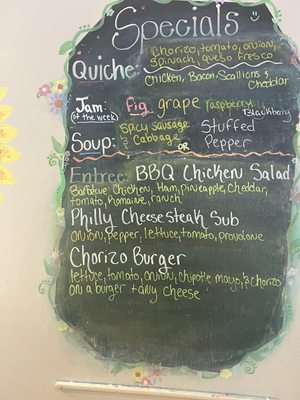 Specials
Chorizo, tomato, onion,
Quiche: spinach, queso fresco
Chicken, Bacon Scallions &
Cheddar
Jam: Fig grape raspberry
(of the week) Blackberry
Soup: Spicy Sausage Stuffed
& Cabbage OR Pepper
Entree: BBQ Chicken Salad
Barbecue Chicken, Ham, Pineapple, Cheddar,
tomato, Romaine, ranch
Philly Cheesesteak Sub
Onion, pepper, lettuce, tomato, provolone
Chorizo Burger
lettuce, tomato, onion, chipotle mayo, & chorizo
on a burger + any cheese